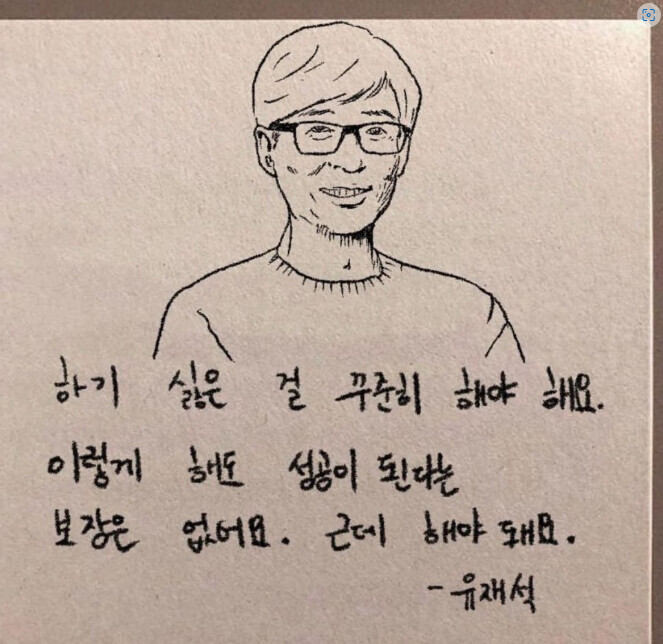 하기 싫은 걸 꾸준히 해야 해요.
이렇게 해도 성공이 된다는
보장은 없어요. 근데 해야 돼요.
-유재석